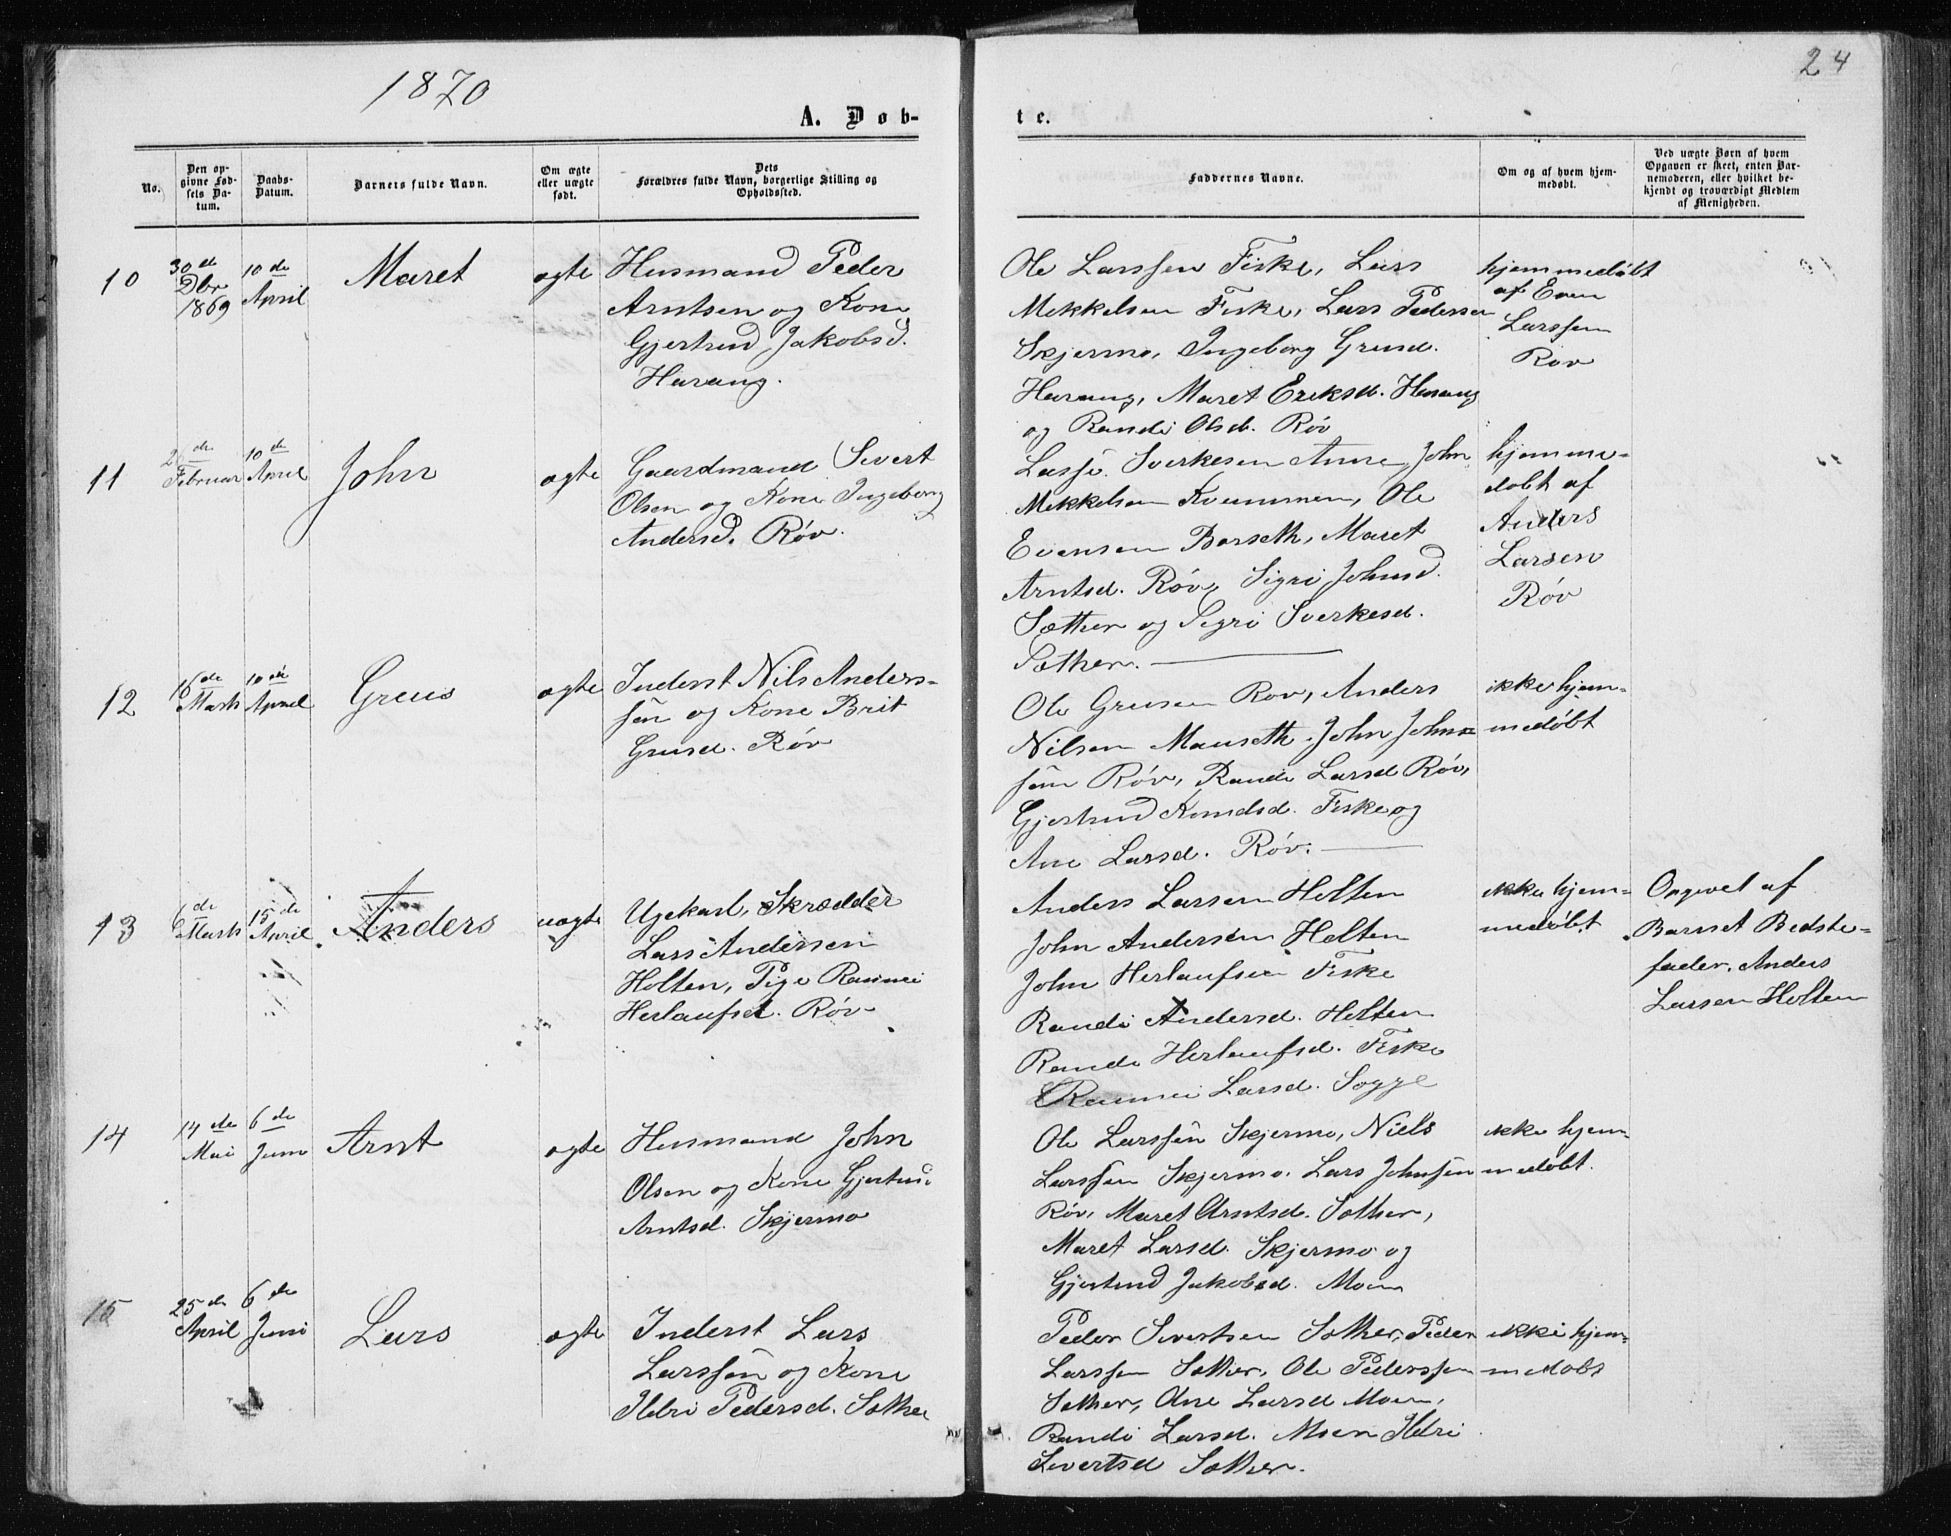 1870
24
A. Døb-
te.
No.
Den op-
givne Fød-
sels Da-
tum.
Daabs-
Datum.
Barnets fulde Navn.
Om ægte
eller uægte
født.
Dets
Forældres fulde Navn, borgerlige Stilling og
Opholdssted.
Faddernes Navne.
Om og af hvem hjem-
medøbt.
Ved uægte Børn af hvem
Opgaven er skeet, enten Bar-
nemoderen, eller hvilket be-
kjendt og troværdigt Medlem
af Menigheden.
10
30 de
Dbr
1869
10 de
April
Maret
ægte
Husmand Peder
Arntsen og Kone
Gjertrud Jakobsd.
Harang.
Ole Larssen Fiske, Lars
Mekkelsen Fiske, Lars Pedersen
Skjermo, Ingeborg Grusd.
Harang, Maret Eriksd. Harang
og Randi Olsd. Røv
hjemmedøbt
af Even
Larssen
Røv
11
Februar
10 de
April
John
ægte
Gaardmand Sivert
Olsen og Kone Ingeborg
Andersd. Røv.
Lasse Sverkesen Anne, John
Mekkelsen Kvammen, Ole
Evensen Børseth, Maret
Arntsd. Røv, Sigri Johnsd.
Sæther og Sigri Sverkesd.
Sæther.
hjemme-
døbt af
Anders
Larsen
Røv
12
16 de
Marts
10 de
April
Greus
ægte
Inderst Nils Anders-
sen og Kone Brit
Grusd. Røv
Ole Grusen Røv, Anders
Nilsen Mauseth, John John-
sen Røv, Randi Larsd Røv,
Gjertrud Knudsd. Fiske og
Ane Larsd. Røv.
ikke hjem-
medøbt
13
6 de
Marts
15 de
April
Anders
uægte
Ugekarl, Skrædder
Lars Andersen
Holten, Pige Rannei
Herlaufsd. Røv
Anders Larsen Holten
John Andersen Holten
John Herlaufsen Fiske
Randi Andersd. Holten
Randi Herlaufsd. Fiske
Rannei Larsd. Sogge
ikke hjem-
medøbt
Opgivet af
Barnet Bedste-
fader, Anders
Larsen Holten
14
14 de
Mai
6 de
Juni
Arnt
ægte
Husmand John
Olsen og Kone Gjertrud
Arntsd. Skjermo
Ole Larssen Skjermo, Niels
Larssen Skjermo, Lars Johnsen
Røv, Maret Arntsd. Sæther,
Maret Larsd. Skjermo og
Gjertrud Jakobsd. Moen
ikke hjem-
medøbt.
15
25 de
April
6 de
Juni
Lars
ægte
Inderst Lars
Larssen og Kone
Ildri Pedersd. Sæther
Peder Sivertsen Sæther, Peder
Larssen Sæther, Ole Pederssen
Sæther, Ane Larsd Moen,
Randi Larsd. Moen Ildri
Sivertsd Sæther.
ikke hjem-
medøbt